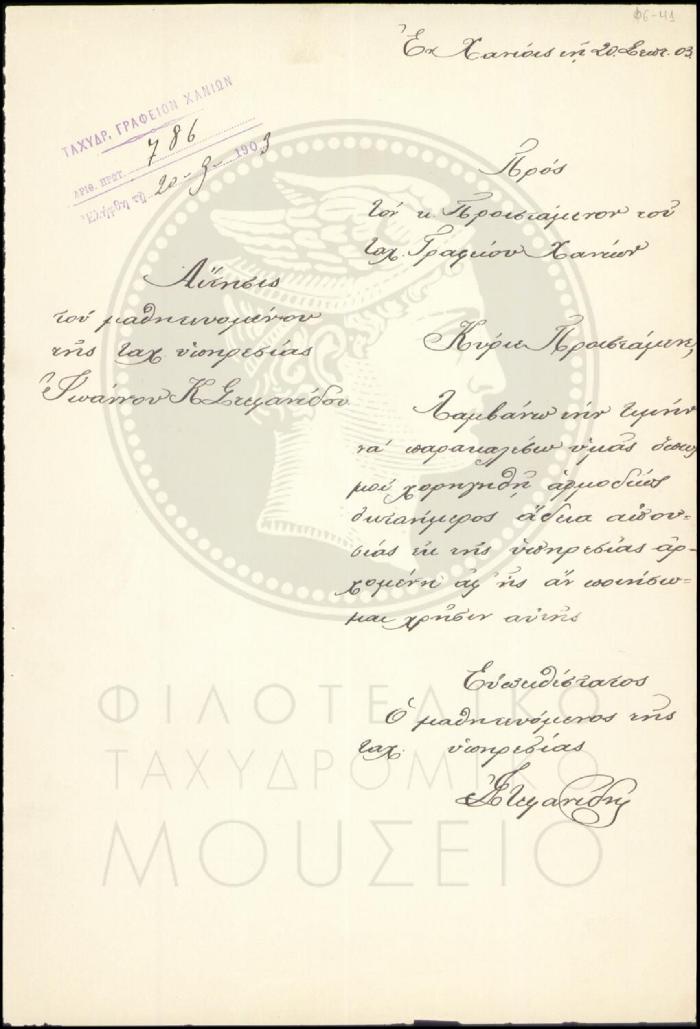 Φ6-41
Ἐν Χανίοις τῇ 20. Σεπτ. 03.
ΤΑΧΥΔΡ. ΓΡΑΦΕΙΟΝ ΧΑΝΙΩΝ
ΑΡΙΘ. ΠΡΩΤ. 786
20-9-1903
Πρός
τὸν κ. Προϊστάμενον τοῦ
ταχ. Γραφείου Χανίων
Αἴτησις
τοῦ μαθητευομένου
τῆς ταχ. ὑπηρεσίας
Ἰωάννου Κ Στεφανίδου
Κύριε Προϊστάμενε,
Λαμβάνω τὴν τιμὴν
νὰ παρακαλέσω ὑμᾶς ὅπως
μοὶ χορηγηθῇ ἁρμοδίως
ὀκταήμερος ἄδεια ἀπου-
σίας ἐκ τῆς ὑπηρεσίας ἀρ-
χομένη ἀφ' ἧς ἂν ποιήσω-
μαι χρῆσιν αὐτῆς
Εὐπειθέστατος
Ὁ μαθητευόμενος τῆς
ταχ. ὑπηρεσίας
Στεφανίδης
ΦΙΛΟΤΕΛΙΚΟ
ΤΑΧΥΔΡΟΜΙΚΟ
ΜΟΥΣΕΙΟ